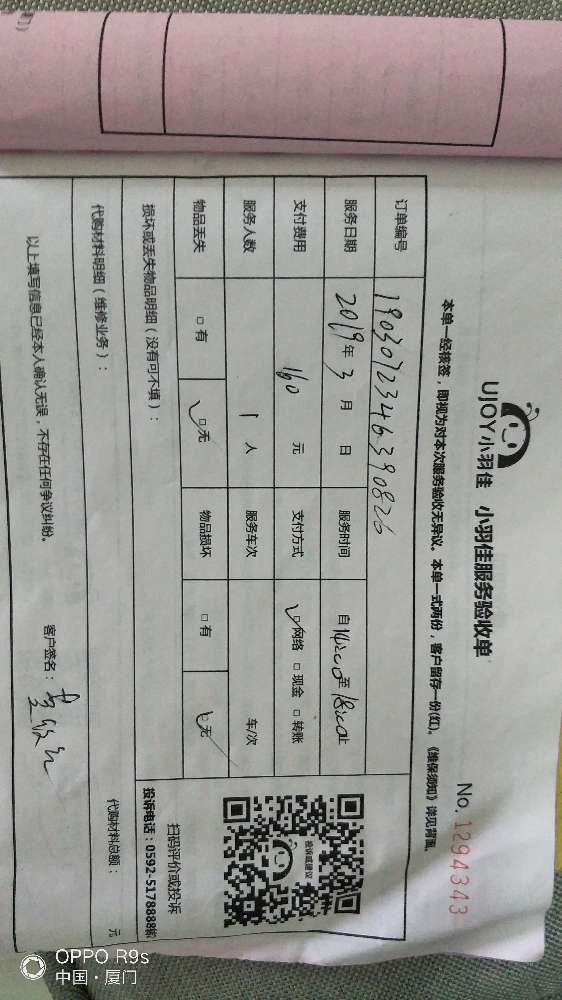 UJOY小羽佳 小羽佳服务验收单
No. 1294343
本单一经核签，即视为对本次服务验收无异议。本单一式两份，客户留存一份(红)。《维保须知》详见背面。
订单编号 1903072346390826
服务日期 2019年3月 日 服务时间 自14:00至18:00止
支付费用 160 元 支付方式 ☑网络 □现金 □转账
服务人数 1 人 服务车次 车/次
物品丢失 □有 ☑无 物品损坏 □有 ☑无
损坏或丢失物品明细（没有可不填）：
扫码评价或投诉
投诉电话：0592-5178888转
代购材料明细（维修业务）：
代购材料总额： 元
以上填写信息已经本人确认无误，不存在任何争议纠纷。
客户签名：
OPPO R9s
中国·厦门